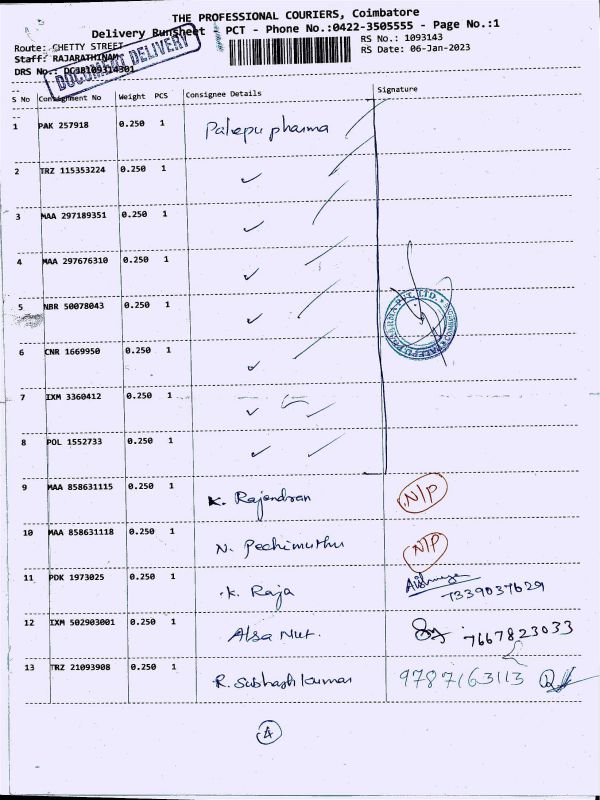 THE PROFESSIONAL COURIERS, Coimbatore
Delivery Runsheet PCT - Phone No.:0422-3505555 - Page No.:1
Route: CHETTY STREET RS No.: 1093143
Staff: RAJARATHINAM RS Date: 06-Jan-2023
DRS No.:
DOCUMENT DELIVERY
S No Consignment No Weight PCS Consignee Details Signature
1 PAK 257918 0.250 1 Palepu pharma
2 TRZ 115353224 0.250 1 ✓
3 MAA 297189351 0.250 1 ✓
4 MAA 297676310 0.250 1 ✓
5 NBR 50078043 0.250 1 ✓
6 CNR 1669950 0.250 1 ✓
7 IXM 3360412 0.250 1 ✓
8 POL 1552733 0.250 1 ✓
9 MAA 858631115 0.250 1 K. Rajendran N/P
10 MAA 858631118 0.250 1 N. Pechimuthu N/P
11 PDK 1973025 0.250 1 K. Raja 7339037629
12 IXM 502903001 0.250 1 Alsa Nut. 7667823033
13 TRZ 21093908 0.250 1 R. Subhash kumar 9787163113
4